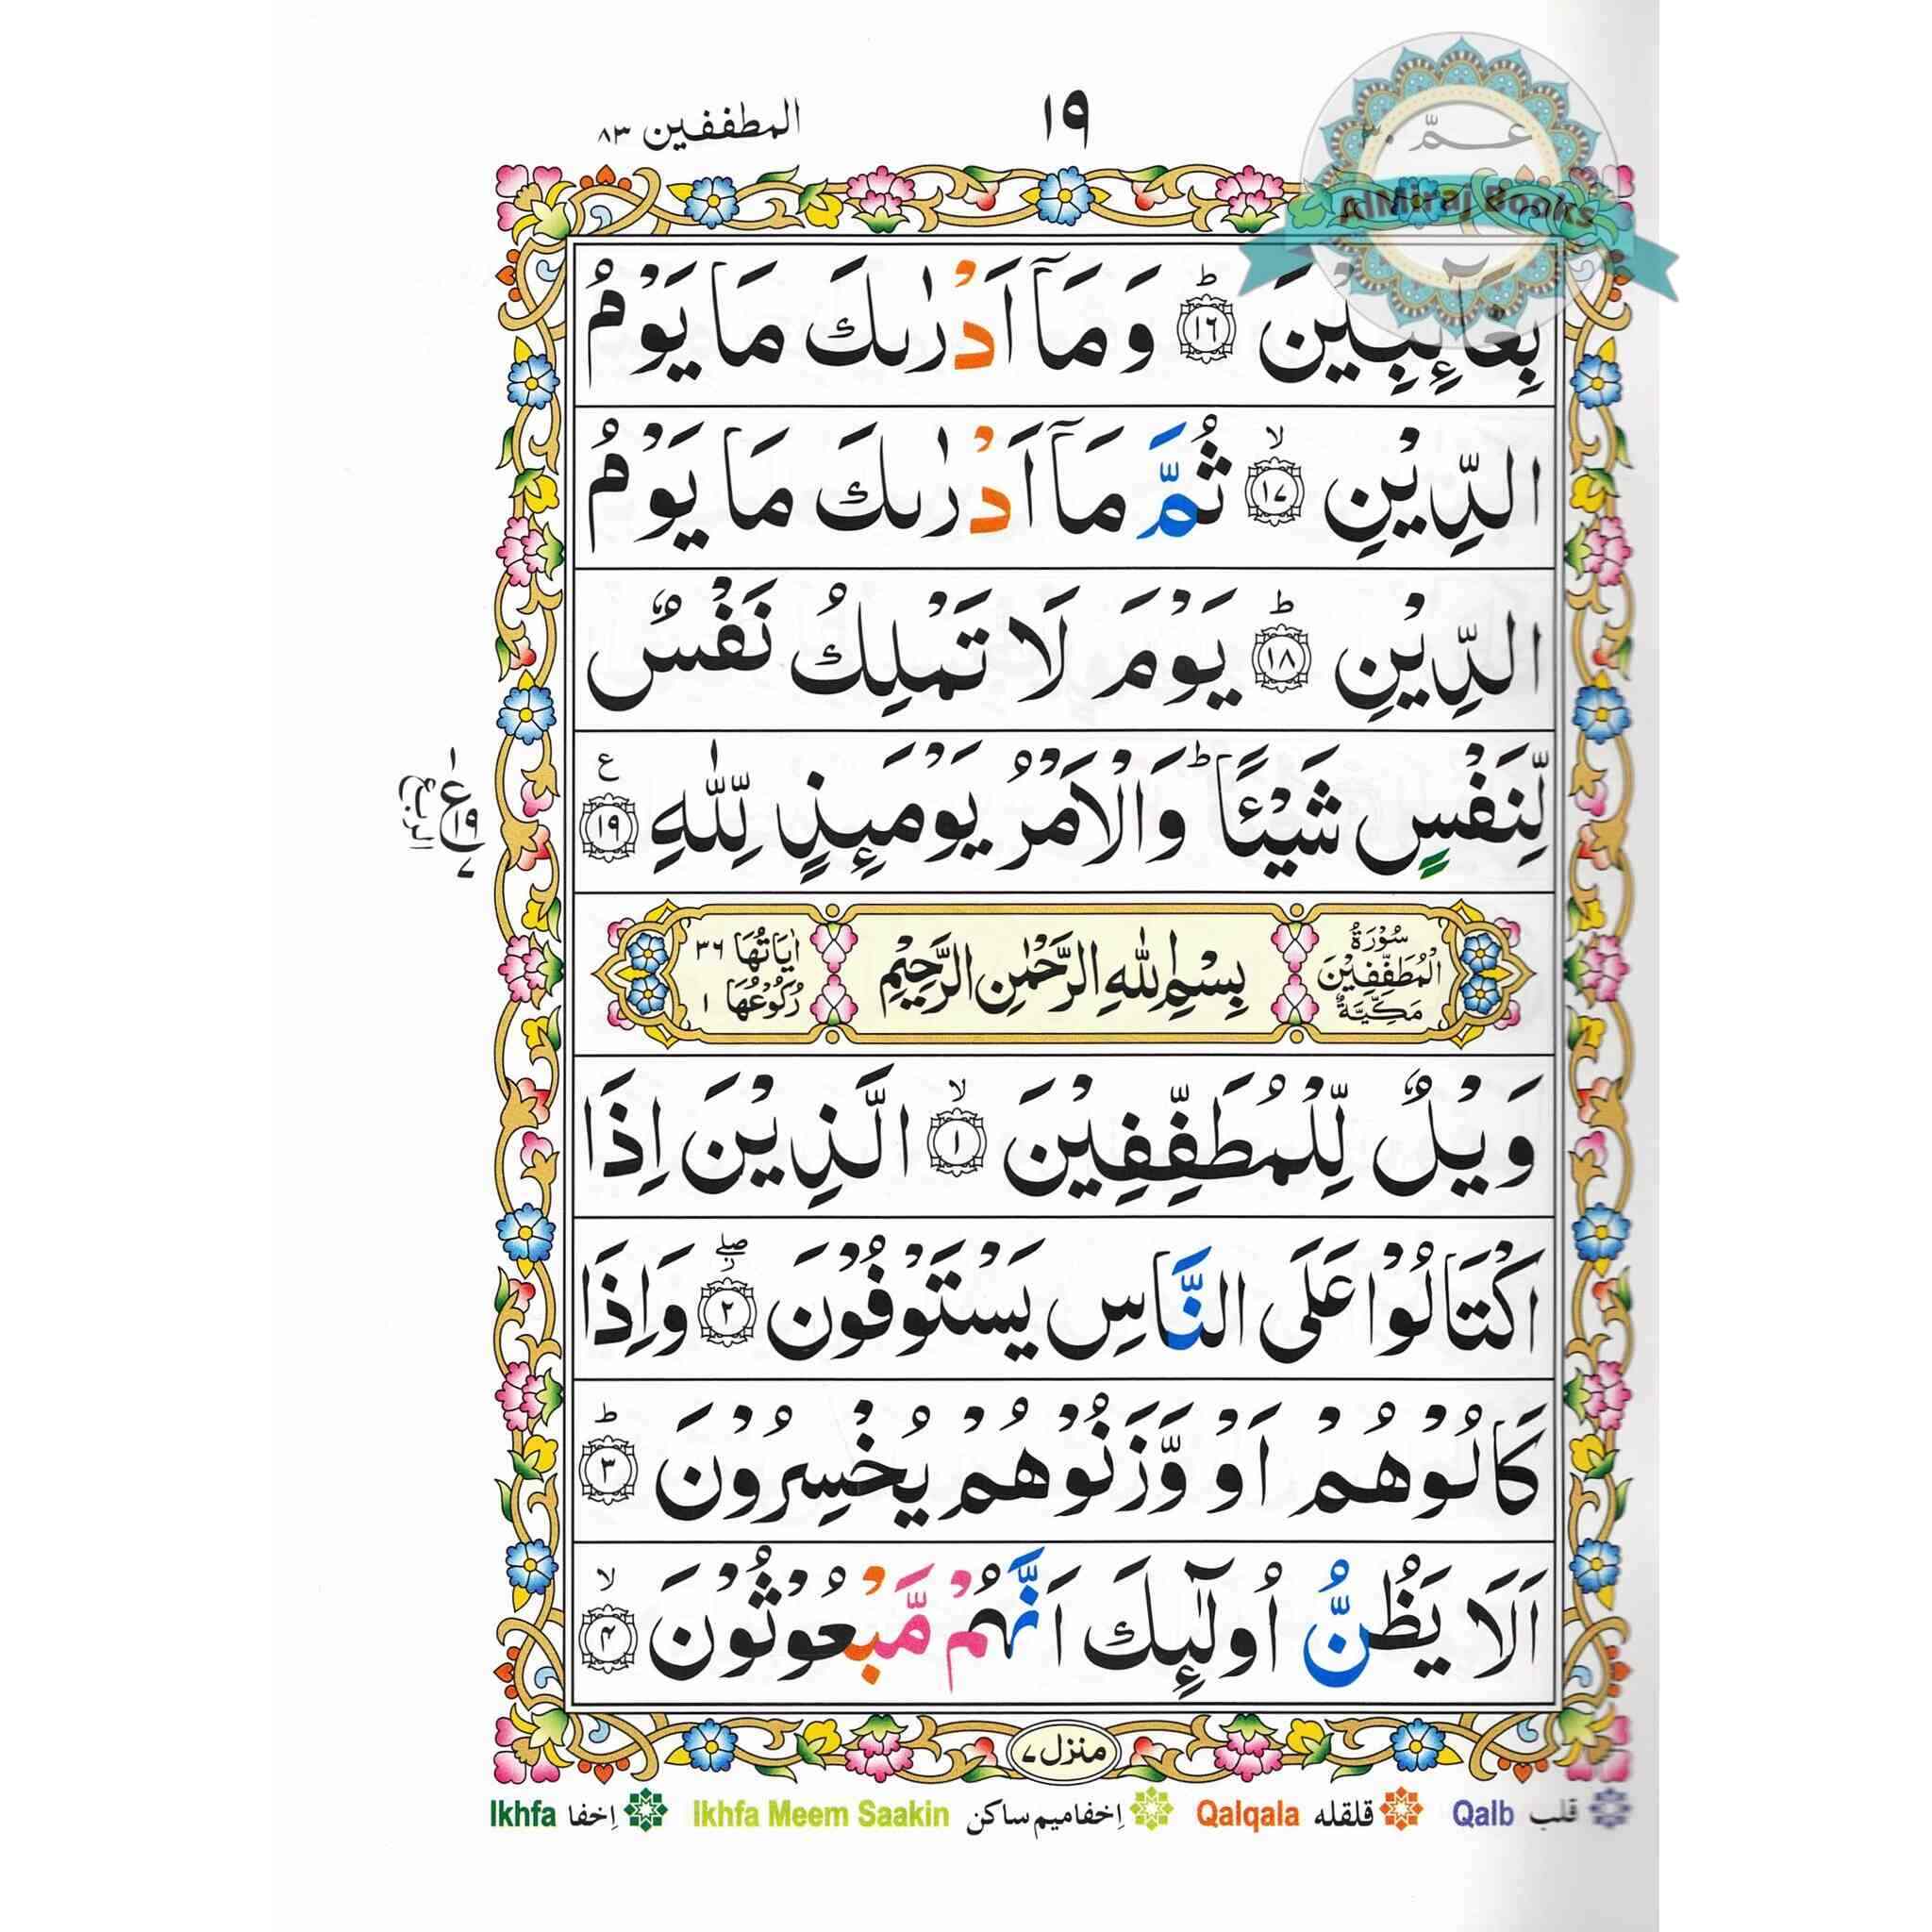 المطففين ٨٣
١٩
عمّ ٣٠
AlMiraj Books
بِغَآئِبِيْنَ ؕ‏ ﴿۱۶﴾ وَمَاۤ اَدْرٰىكَ مَا يَوْمُ
الدِّيْنِۙ‏ ﴿۱۷﴾ ثُمَّ مَاۤ اَدْرٰىكَ مَا يَوْمُ
الدِّيْنِؕ‏ ﴿۱۸﴾ يَوْمَ لَا تَمْلِكُ نَفْسٌ
لِّنَفْسٍ شَيْئًا ؕ وَالْاَمْرُ يَوْمَٮِٕذٍ لِّلّٰهِ ﴿۱۹﴾ ع
ع ١ ١٩ ٧
سُوْرَةُ الْمُطَفِّفِيْنَ مَكِّيَّةٌ
بِسْمِ اللّٰهِ الرَّحْمٰنِ الرَّحِيْمِ
اٰيَاتُهَا ٣٦ رُكُوْعُهَا ١
وَيْلٌ لِّلْمُطَفِّفِيْنَۙ‏ ﴿۱﴾ الَّذِيْنَ اِذَا
اكْتَالُوْا عَلَى النَّاسِ يَسْتَوْفُوْنَ ۖ ﴿۲﴾ وَاِذَا
كَالُوْهُمْ اَوْ وَّزَنُوْهُمْ يُخْسِرُوْنَؕ‏ ﴿۳﴾
اَلَا يَظُنُّ اُولٰٓٮِٕكَ اَنَّهُمْ مَّبْعُوْثُوْنَۙ‏ ﴿۴﴾
منزل ٧
قلب Qalb قلقله Qalqala اِخفا ميم ساكن Ikhfa Meem Saakin اِخفا Ikhfa